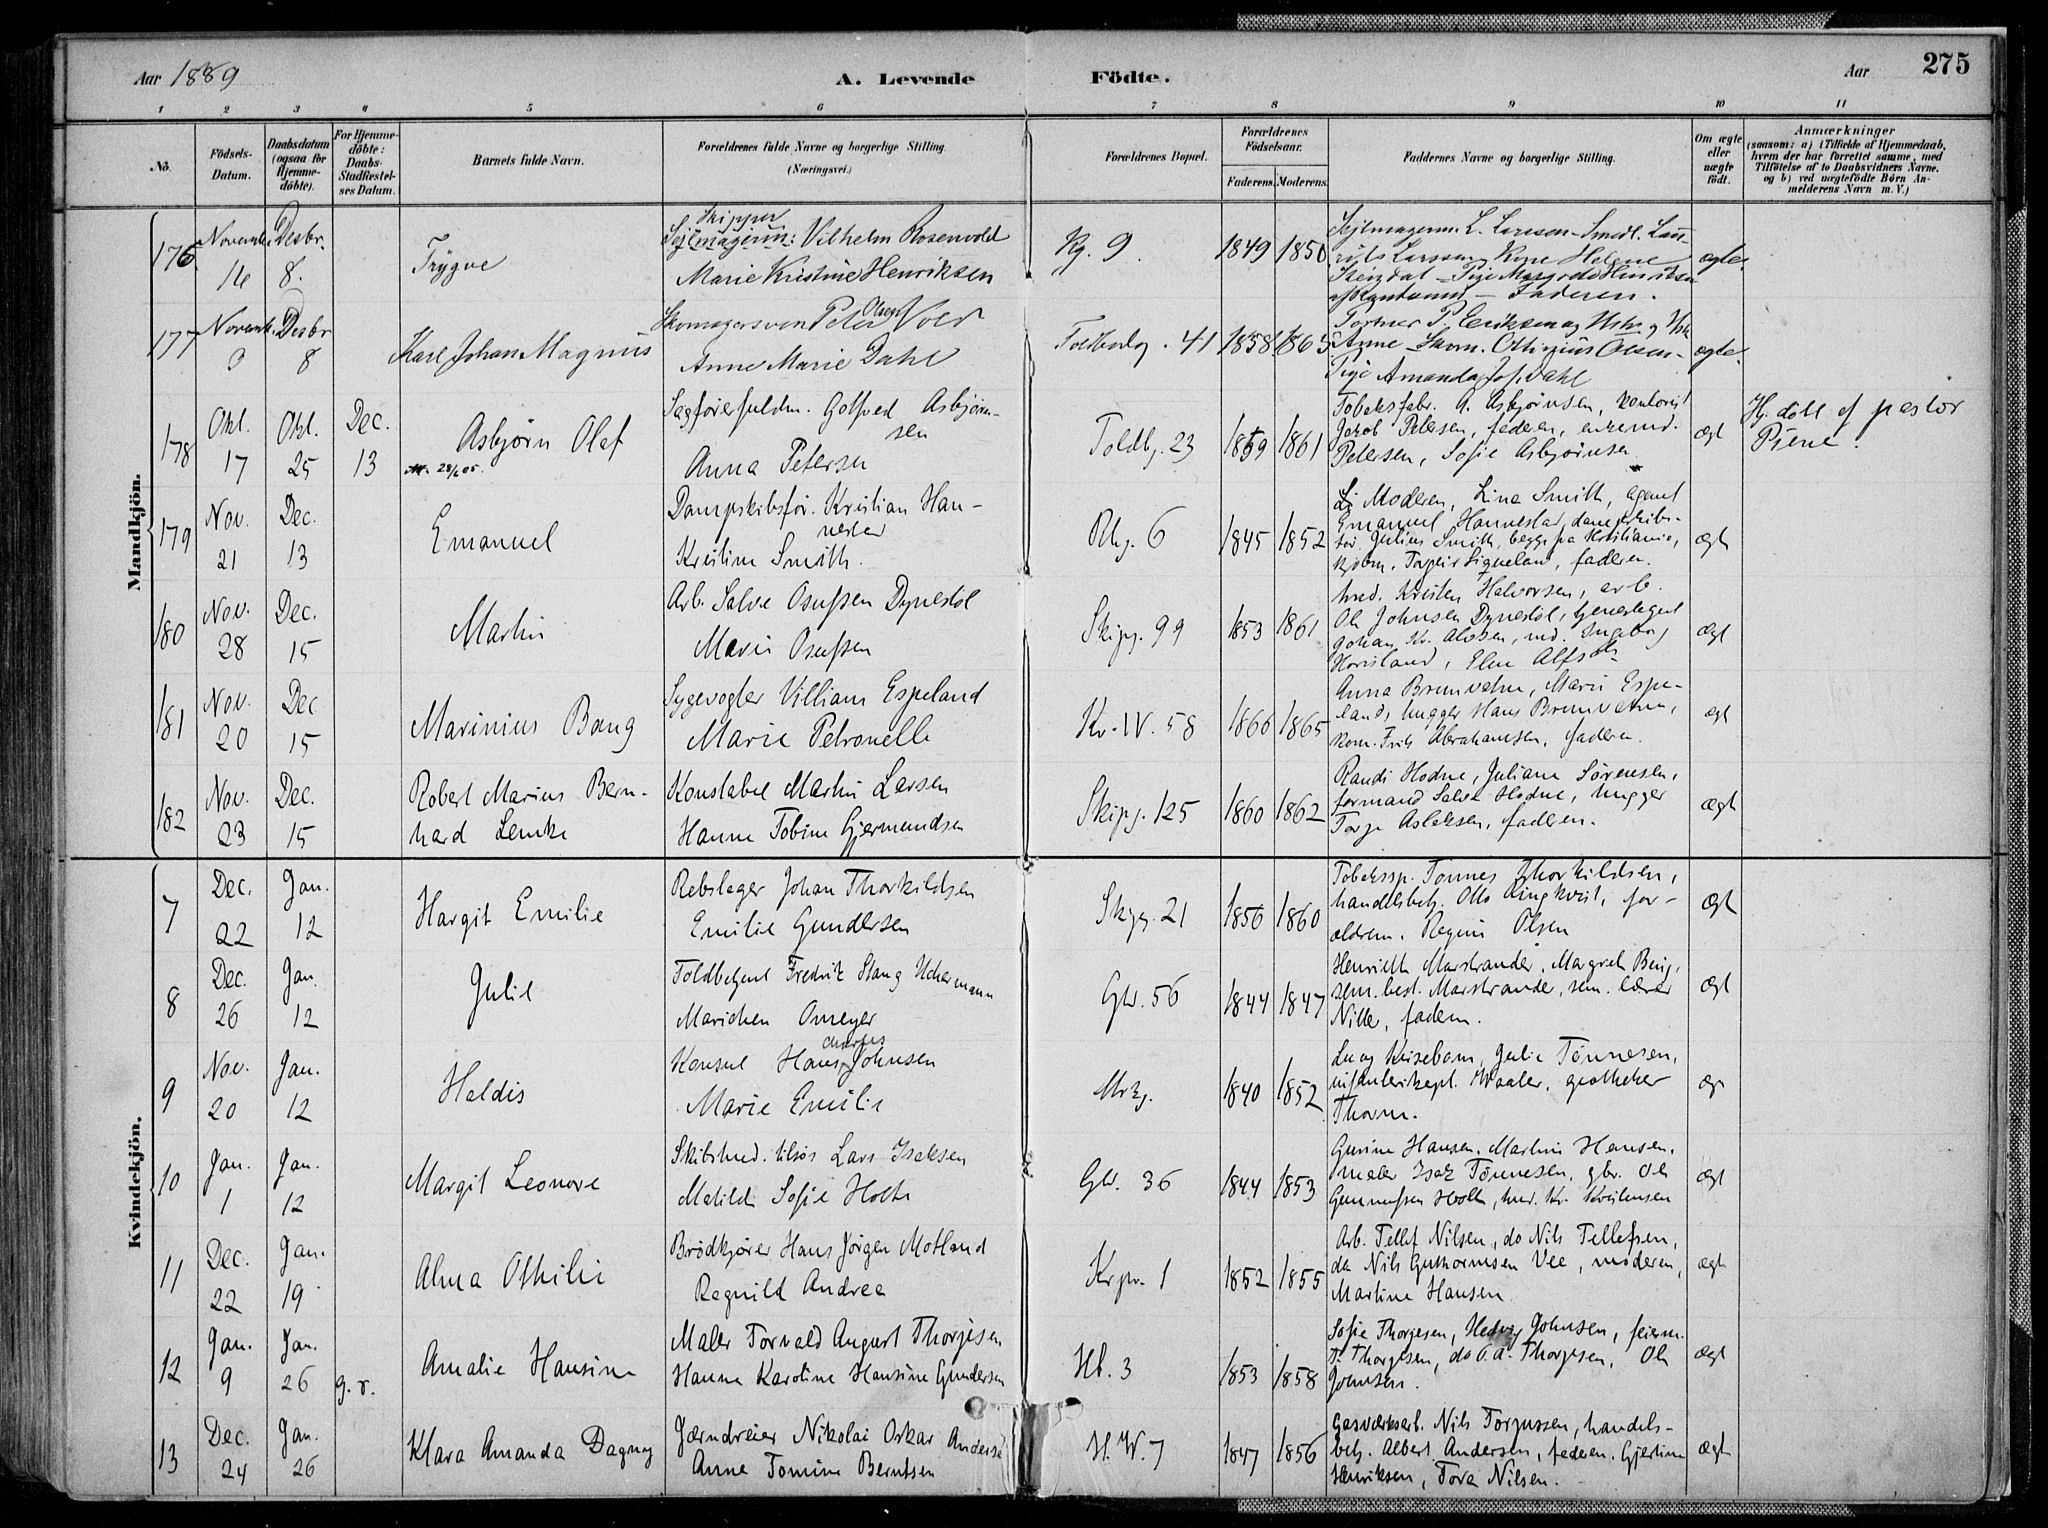 Aar 1889
A. Levende Födte.
Aar 275
1 2 3 4 5 6 7 8 9 10 11
No.
Födsels-Datum.
Daabsdatum (ogsaa for Hjemme-döbte).
For Hjemme-döbte: Daabs-Stadfæstelses Datum.
Barnets fulde Navn.
Forældrenes fulde Navne og borgerlige Stilling.
(Næringsvei.)
Forældrenes Bopæl.
Forældrenes Födselsaar.
Faderens. Moderens.
Faddernes Navne og borgerlige Stilling.
Om ægte eller uægte født.
Anmærkninger
(saasom: a) i Tilfælde af Hjemmedaab, hvem der har forrettet samme, med Tilföielse af to Daabsvidners Navne, og b) ved uægtefödte Börn Anmelderens Navn m. V.)
Mandkjön.
176 Novemb. 14 Desbr. 8.
Trygve
Skipper
Sejlmagerm: Vilhelm Rosenvold
Marie Kristine Henriksen
Kg. 9. 1849 1850
Sejlmagerm. L. Larsen - Smedl. Lau-
rits Larssen, Kone Helene
- Pige Margrethe Henriksen
- Faderen.
ægte.
177 Novemb. 9 Desbr 8
Karl Johan Magnus
Skomagersven Peter Olsen Vold
Anne Marie Dahl
Toldbodg. 41 1858 1865
P. Eriksen og Hstr. og
Anne - Skom. Olsen -
Pige Amanda Jos. Dahl
ægte.
178 Okt. 17 Okt. 25 Dec. 13
Asbjørn Olaf
Sagførerfuldm. Gotfred Asbjørn-
sen
Anna Petersen
Toldbg. 23 1859 1861
Tobaksfabr. A. Asbjørnsen, kontorist
Jakob Petersen, faderen, enkemd.
Petersen, Sofie Asbjørnsen
ægt
Hj. døbt af pastor
Piene.
179 Nov. 21 Dec. 13
Emanuel
Dampskibsfør. Kristian Han-
nestad
Kristine Smith.
Rdg. 6 1845 1852
Moderen, Lina Smith, agent
Emanuel Hannestad, dampskibs-
før. Julius Smith, begge på Kristiania,
kjøbm. Torgeir Sigueland, faderen.
ægt
180 Nov. 28 Dec. 15
Martin
Arb. Salve Osufsen Dynestøl
Marie Osufsen
Skipg. 99 1853 1861
hmd. Kristen Halvorsen, arb.
Ole Johnsen Dynestøl,
Johan Kr. Olsen, md. Ingeborg
Horisland, Elen Alfsdt.
ægt
181 Nov. 20 Dec 15
Marinius Bang
Sygevogter Villiam Espeland
Marie Petronelle
Kv. IV. 58 1866 1865
Anna Brunvatne, Marie Espe-
land, hugger Hans Brunvatne,
kom. Frits Abrahamsen, faderen.
ægt
182 Nov. 23 Dec. 15
Robert Marius Bern-
hard Lemke
Konstabel Martin Larsen
Hanne Tobine Gjermundsen
Skipg. 125 1860 1862
Randi Hodne, Juliane Sørensen,
formand Salve Hodne, hugger
Torje Aslaksen, faderen.
ægt
Kvindekjön.
7 Dec. 22 Jan. 12
Hargit Emilie
Rebslager Johan Thorkildsen
Emilie Gundersen
Skpg. 21 1856 1860
Tobakssp. Tønnes Thorkildsen,
handelsbetj. Otto Ringkvist, for-
ældrem. Regine Olsen
ægt
8 Dec. 26 Jan. 12
Julie
Toldbetjent Fredrik Stang Uchermann
Marichen Omeyer
Glv. 56 1844 1847
Henriette Marstrander, Margrete Bing,
sem.best. Marstrander, sem. lærer
Nille, fadern.
ægt
9 Nov. 20 Jan. 12
Haldis
Konsul Hans Charles Johnsen
Marie Emilie
Mrkg. 1840 1852
Lucy Kiseboom, Julie Tønnesen,
infanterikapt. Waaler, apotheker
Thorm.
æg
10 Jan. 1 Jan. 12
Margit Leonore
Skibstmd. tilsjøs Lars Isaksen
Matilde Sofie Holte
Glv. 36 1844 1853
Gurine Hansen, Martine Hansen,
maler Isak Tønnesen, gbr. Ole
Gunnufsen Holte, hmd. Kr. Kristensen
ægt
11 Dec. 22 Jan. 19
Alma Othilie
Brødkjører Hans Jørgen Motland
Regnild Andrea
Krpr. 1 1852 1855
Arb. Tellef Nilsen, do Nils Tellefsen,
do Nils Guthormsen Vee, moderen,
Martine Hansen
ægt
12 Jan. 9 Jan. 26 g. v.
Amalie Hansine
Maler Torvald August Thorjesen
Hanne Karoline Hansine Gundersen
Hb. 3 1853 1858
Sofie Thorgesen, Hedvig Johnsen, feierm.
T. Thorgesen, do O. A. Thorgesen, Ole
Johnsen.
ægt
13 Dec. 24 Jan. 26
Klara Amanda Dagny
Jærndreier Nikolai Oskar Anderse
Anne Tomine Berntsen
H. W. 7 1847 1856
Gasværksarb. Nils Torjussen, handels-
betj. Albert Andersen, faderen, Gjertine
Henriksen, Tora Nilsen.
ægt